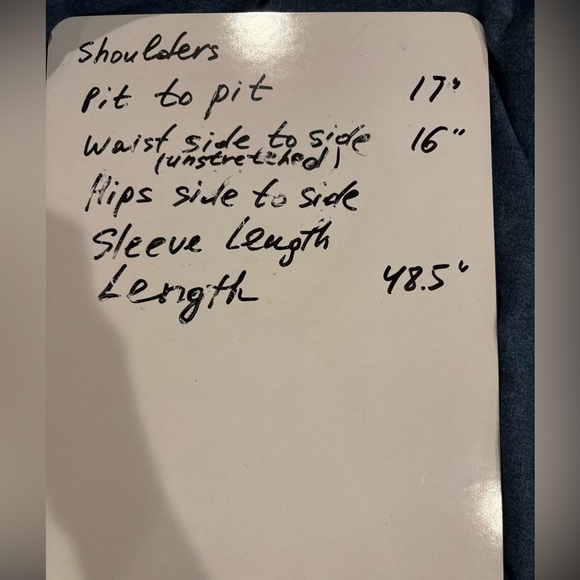 Shoulders
Pit to pit 17"
Waist side to side 16"
(unstretched)
Hips side to side
Sleeve Length
Length 48.5"